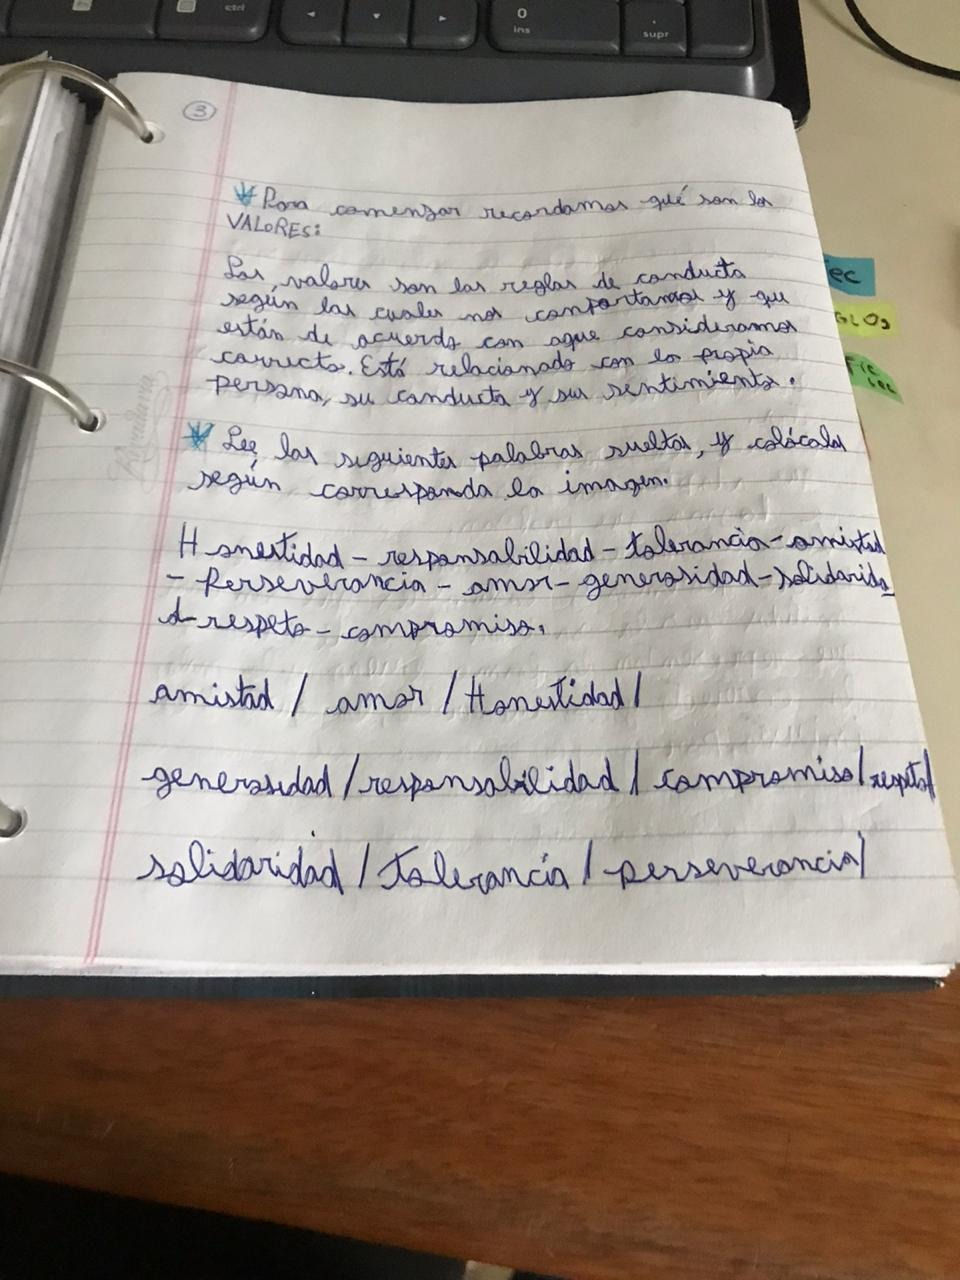 ctrl
0
ins
.
supr
3
Para comenzar recordamos qué son los
VALORES:
Los valores son las reglas de conducta
según las cuales nos comportamos y que
están de acuerdo con aque consideramos
correcto. Está relacionado con la propia
persona, su conducta y sus sentimientos.
Lee las siguientes palabras sueltas, y colócalas
según corresponda la imagen.
Honestidad - responsabilidad - tolerancia - amistad
- Perseverancia - amor - generosidad - solidarida
d - respeto - compromiso.
amistad / amor / Honestidad /
generosidad / responsabilidad / compromiso / respeto /
solidaridad / tolerancia / perseverancia /
Rivadavia
ec
GLOs